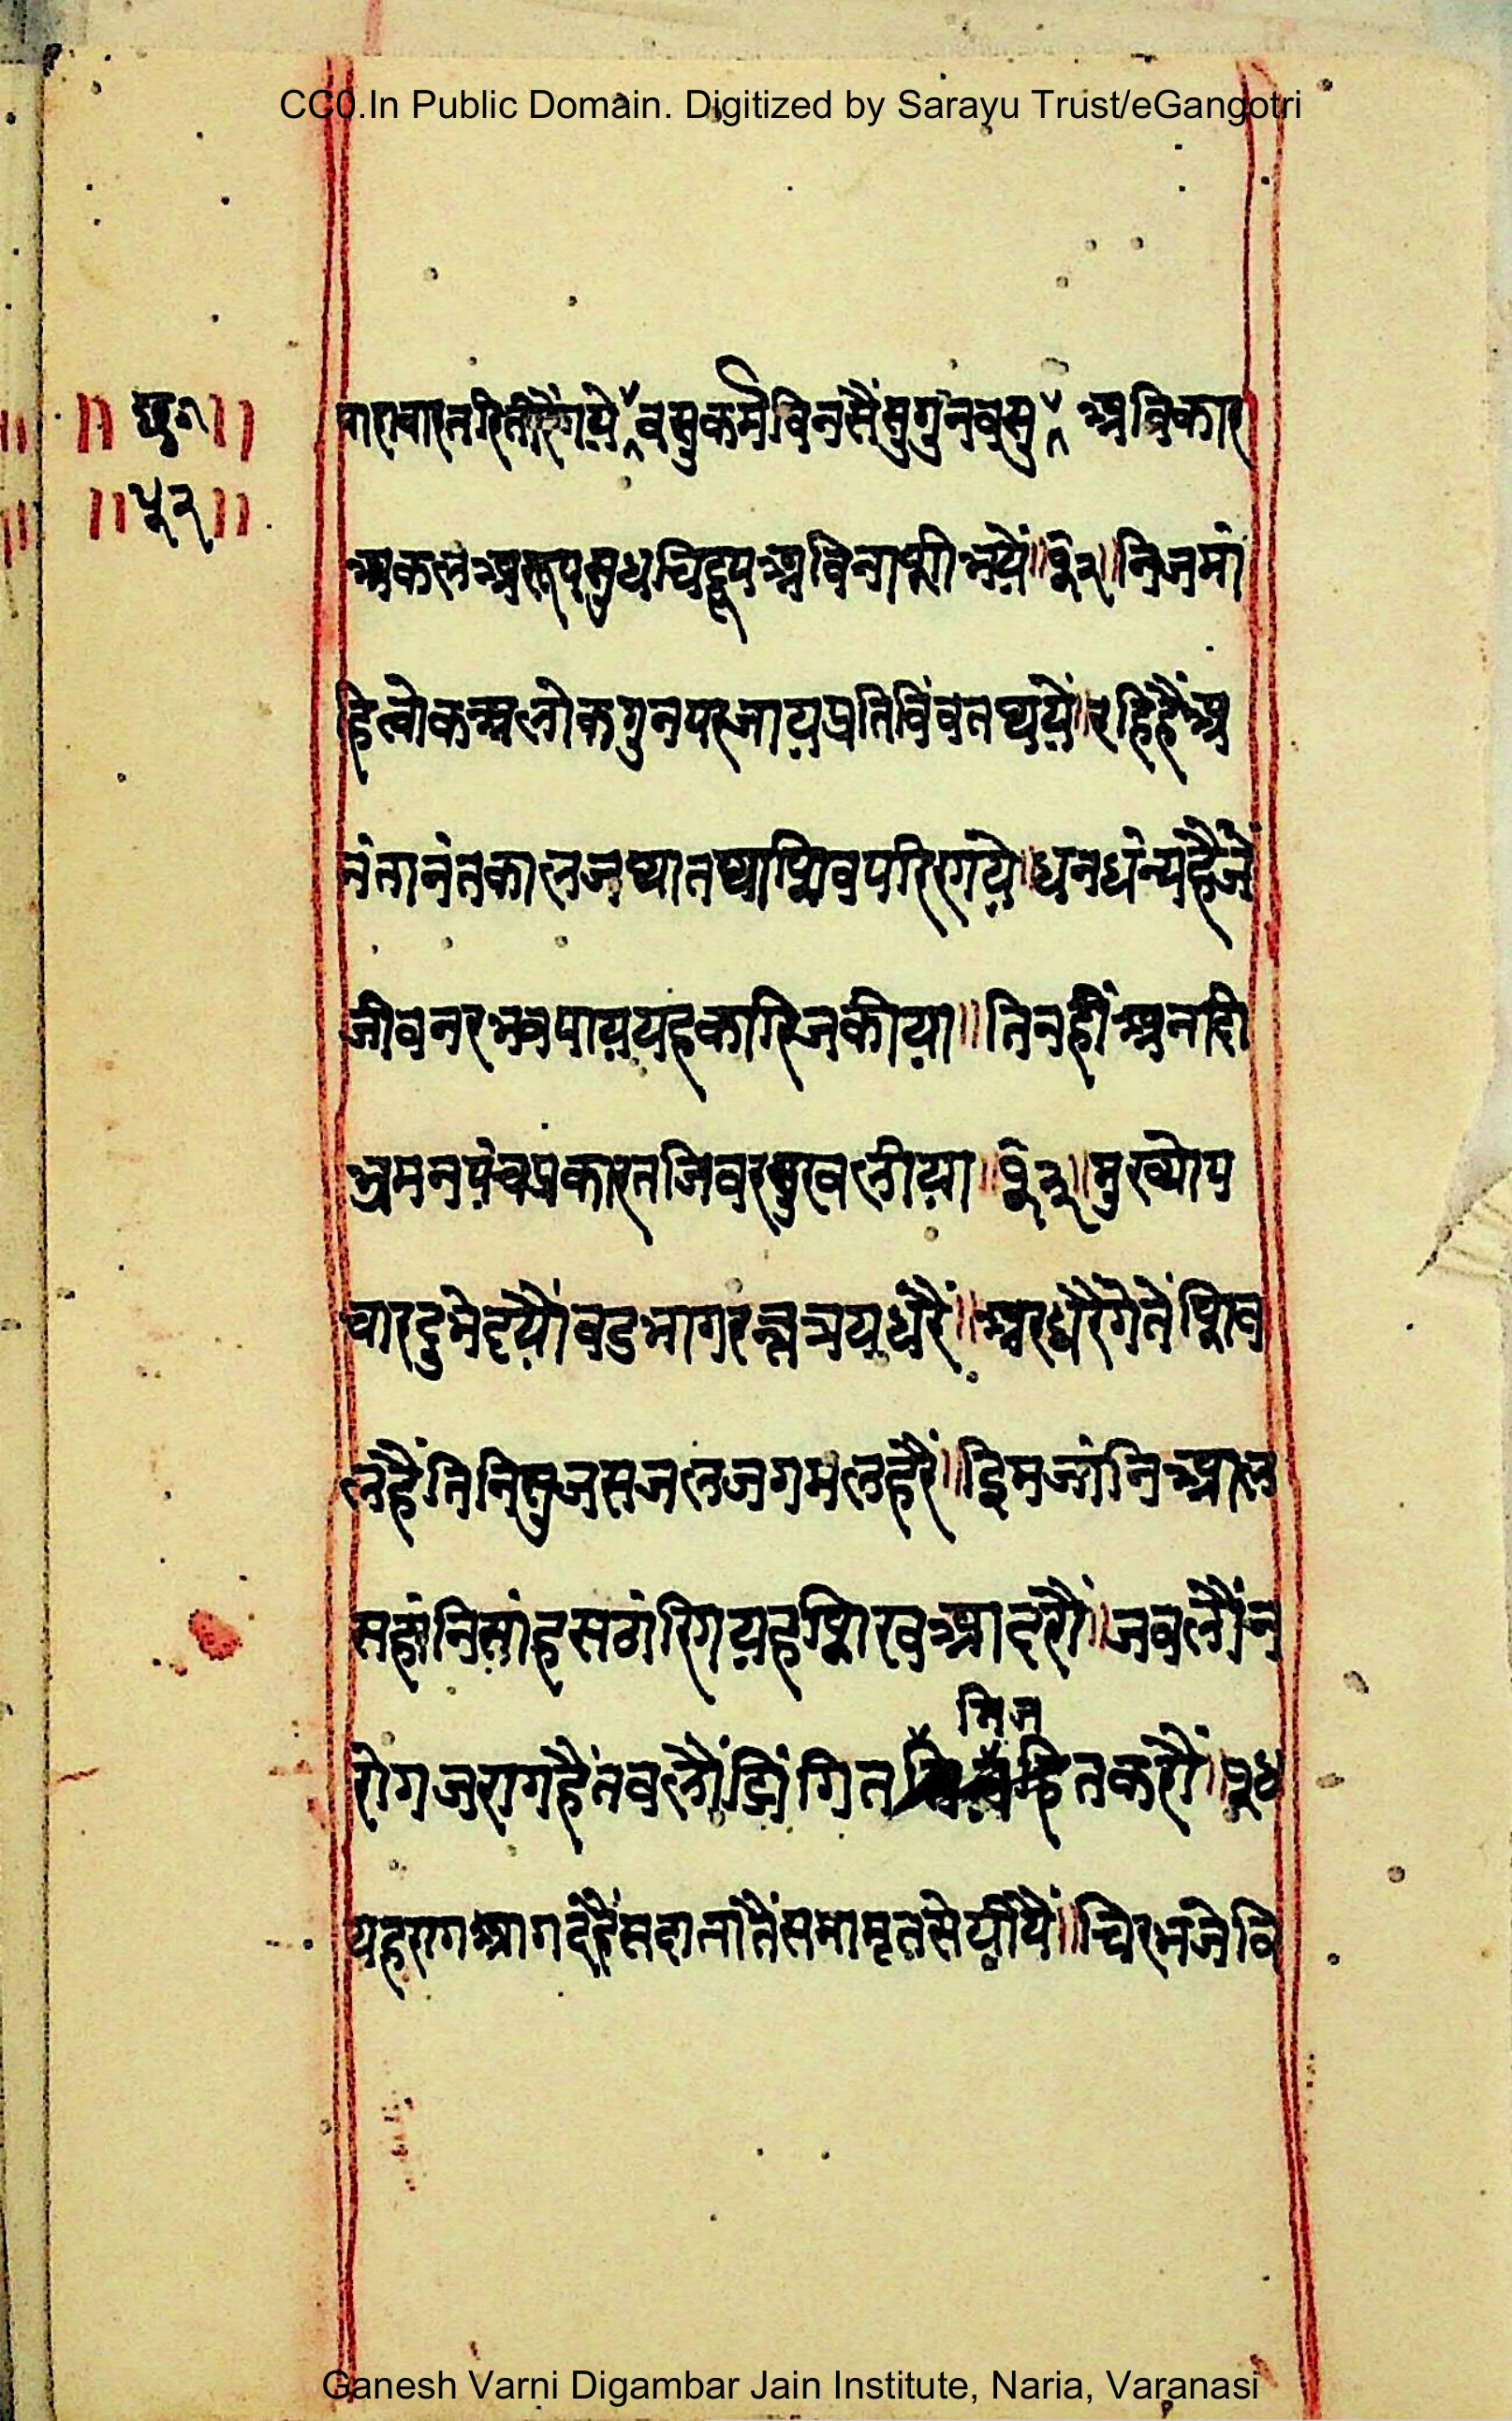 CC0.In Public Domain. Digitized by Sarayu Trust/eGangotri
॥ छ ॥
॥५२॥
पारावारतरितीरैंगये वसुकर्मविनसैंसुगुनवसु अविकार
अकलअरूपसुधचिद्रूपअविनाशीभयें॥१२॥निजमां
हिलोकअलोकगुनपरजायप्रतिविंवतथयें॥रहिहैंअ
नंतानंतकालजथातथाशिवपरिरगये॥धनधंन्यहैंजे
जीवनरभवपाययहकारिजकीया॥तिनहींअनादी
भ्रमनपंचप्रकारतजिवरसुखलीया॥१३॥मुख्योप
चारदुभेदयौंवडभागरत्नत्रयधरैं॥अरधरैंगेतेंशिव
लहैंतिनिसुजसजलजगमलहरैं॥इमिजांनिआल
सहांनिसांहसठांरिगयहशिखआदरौं॥जवलौंन
रोगजरागहैंतवलौंझिंगित हितकरौं॥१४
निज
यहरागआगदहैंसदातांतैंसमामृतसेयीयै॥चिरभजेवि
Ganesh Varni Digambar Jain Institute, Naria, Varanasi